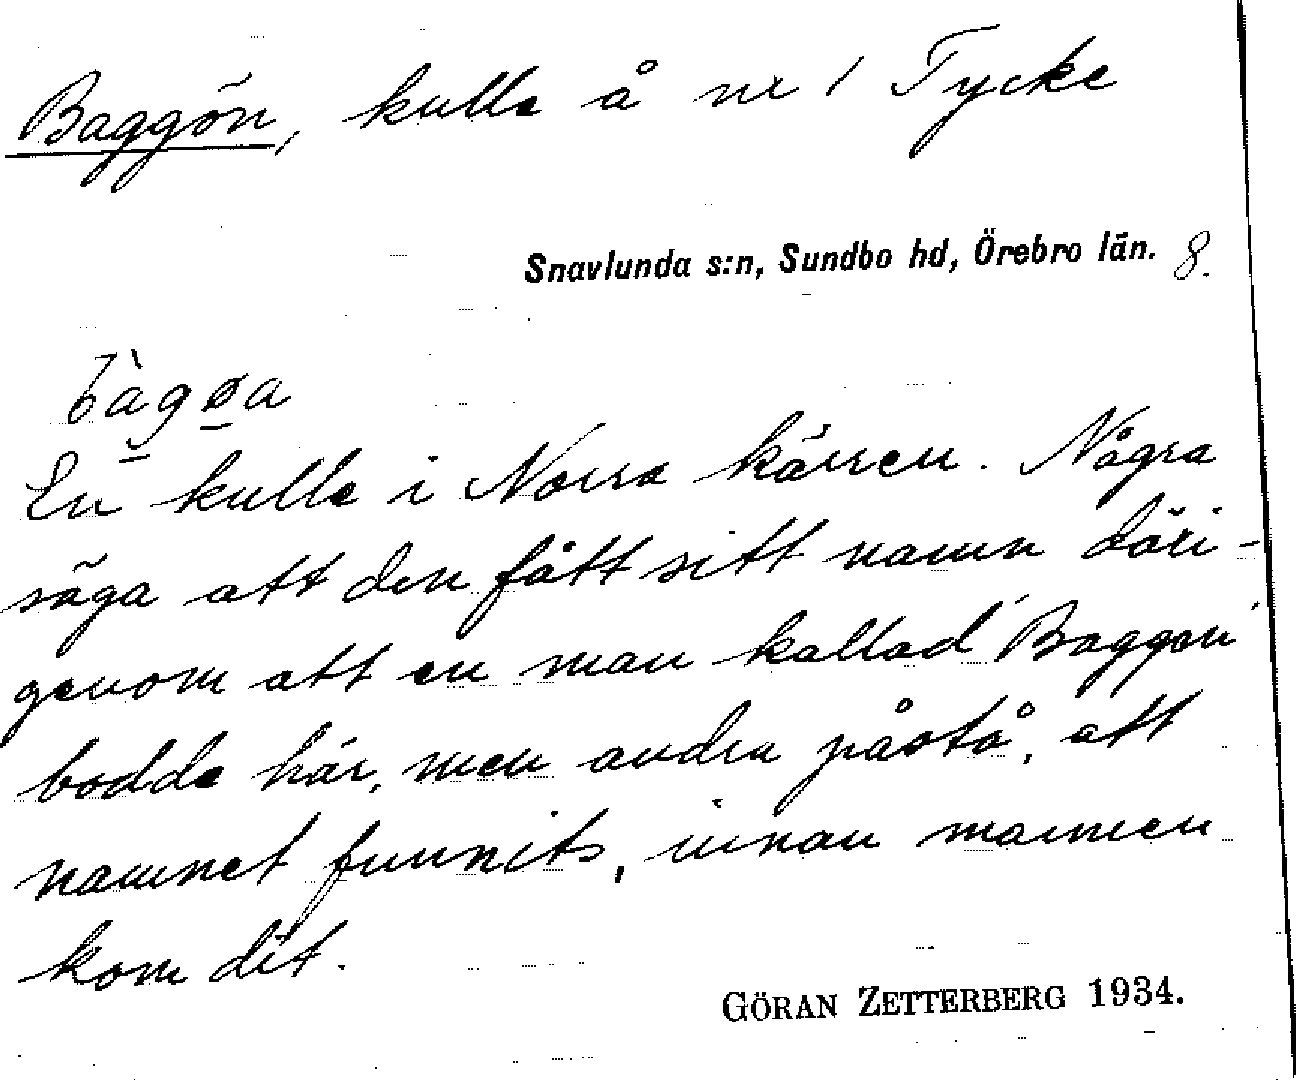 Baggön, kulle å nr 1 Tycke
Snavlunda s:n, Sundbo hd, Örebro län. 8.
En kulle i Norra kärren. Några
säga att den fått sitt namn däri-
genom att en man kallad "Baggen"
bodde här, men andra påstå, att
namnet funnits, innan mannen
kom dit.
GÖRAN ZETTERBERG 1934.